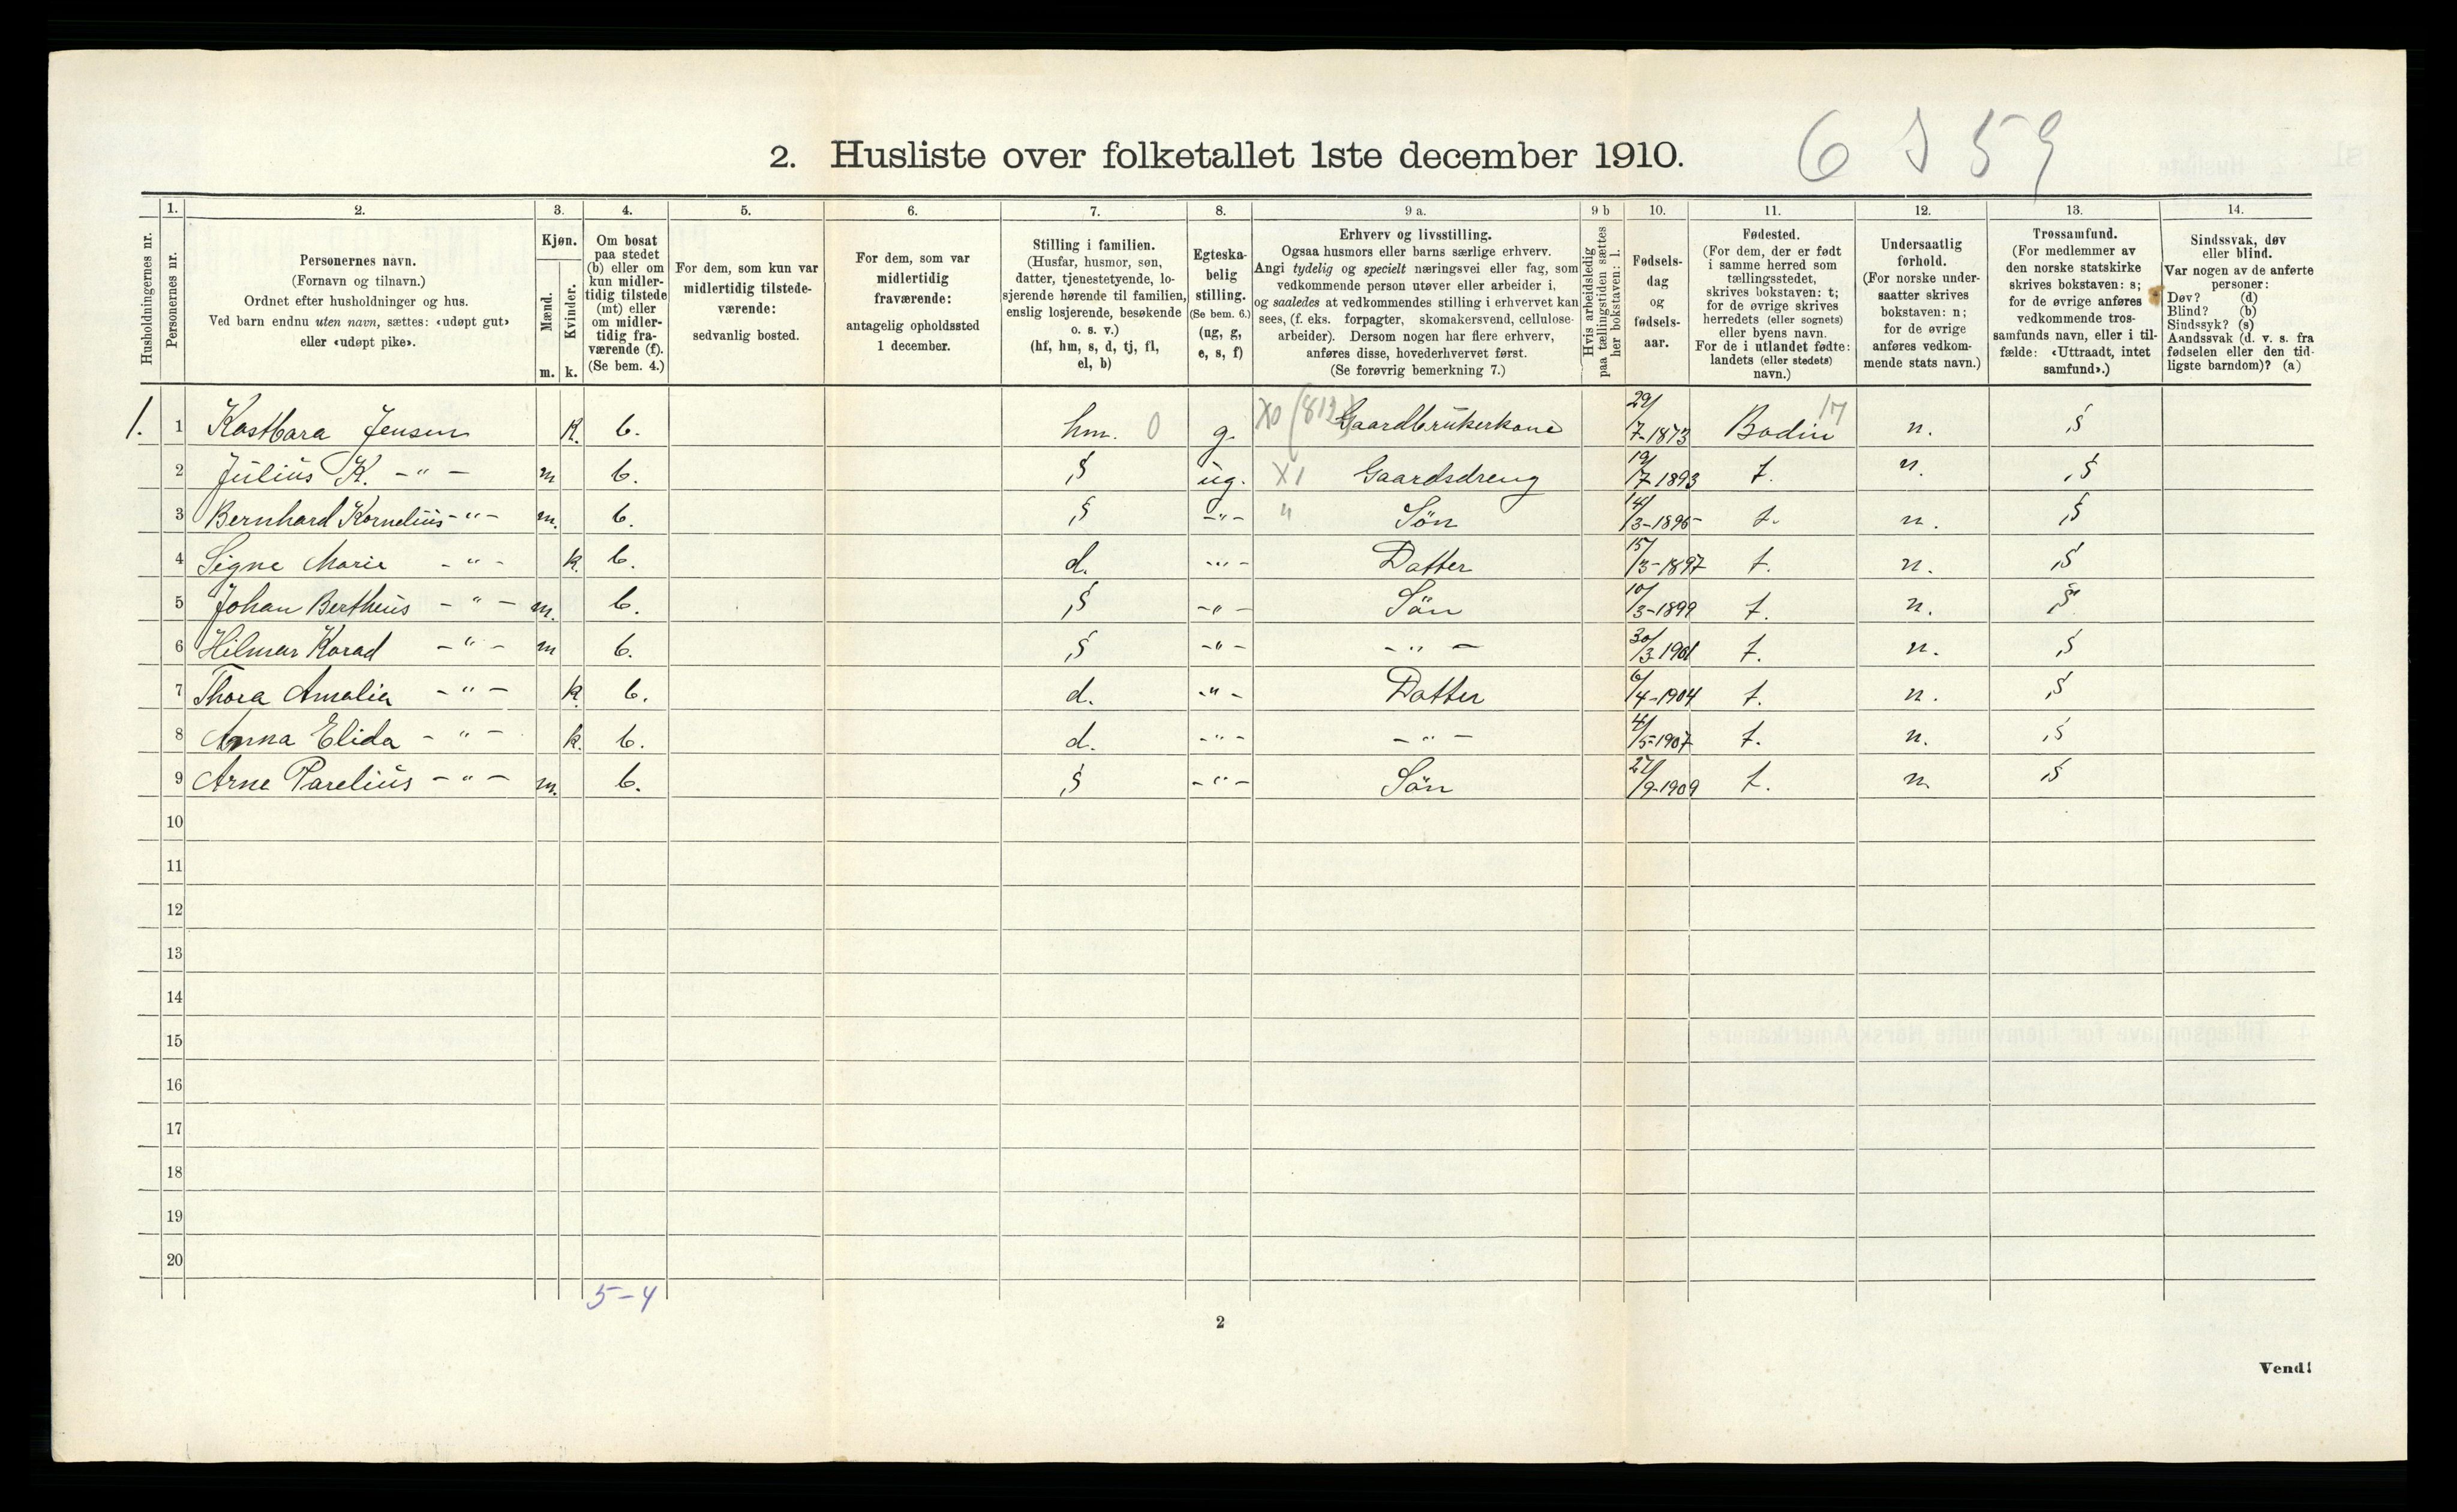 2. Husliste over folketallet 1ste december 1910.
6 59
Husholdningernes nr.
1. Personernes nr.
2. Personernes navn. (Fornavn og tilnavn.) Ordnet efter husholdninger og hus. Ved barn endnu uten navn, sættes: «udøpt gut» eller «udøpt pike».
3. Kjøn. Mænd. m. Kvinder. k.
4. Om bosat paa stedet (b) eller om kun midlertidig tilstede (mt) eller om midlertidig fraværende (f). (Se bem. 4.)
5. For dem, som kun var midlertidig tilstedeværende: sedvanlig bosted.
6. For dem, som var midlertidig fraværende: antagelig opholdssted 1 december.
7. Stilling i familien. (Husfar, husmor, søn, datter, tjenestetyende, losjerende hørende til familien, enslig losjerende, besøkende o. s. v.) (hf, hm, s, d, tj, fl, el, b)
8. Egteskabelig stilling. (Se bem. 6.) (ug, g, e, s, f)
9 a. Erhverv og livsstilling. Ogsaa husmors eller barns særlige erhverv. Angi tydelig og specielt næringsvei eller fag, som vedkommende person utøver eller arbeider i, og saaledes at vedkommendes stilling i erhvervet kan sees, (f. eks. forpagter, skomakersvend, cellulosearbeider). Dersom nogen har flere erhverv, anføres disse, hovederhvervet først. (Se forøvrig bemerkning 7.)
9 b Hvis arbeidsledig paa tællingstiden sættes her bokstaven: l.
10. Fødselsdag og fødselsaar.
11. Fødested. (For dem, der er født i samme herred som tællingsstedet, skrives bokstaven: t; for de øvrige skrives herredets (eller sognets) eller byens navn. For de i utlandet fødte: landets (eller stedets) navn.)
12. Undersaatlig forhold. (For norske undersaatter skrives bokstaven: n; for de øvrige anføres vedkommende stats navn.)
13. Trossamfund. (For medlemmer av den norske statskirke skrives bokstaven: s; for de øvrige anføres vedkommende trossamfunds navn, eller i tilfælde: «Uttraadt, intet samfund».)
14. Sindssvak, døv eller blind. Var nogen av de anførte personer: Døv? (d) Blind? (b) Sindssyk? (s) Aandssvak (d. v. s. fra fødselen eller den tidligste barndom)? (a)
1. 1 Kostbara Jensen k. b. hm. 0 g. X0 (812) Gaardbrukerkone 29/7-1873 Bodin 17 n. s
2 Julius K. -"- m b. s ug. X1 Gaardsdreng 19/7 1893 t. n. s
3 Bernhard Kornelius -"- m. b. s -"- " Sön 14/3-1895 t. n. s
4 Signe Marie -"- k. b. d. -"- Datter 15/3-1897 t. n. s
5 Johan Bertheus -"- m. b. s -"- Sön 10/3-1899 t. n. s
6 Hilmar Korad -"- m b. s -"- -"- 30/3-1901 t. n. s
7 Thora Amalia -"- k. b. d. -"- Datter 6/4-1904 t. n. s
8 Anna Elida -"- k. b. d. -"- -"- 4/5-1907 t. n. s
9 Arne Parelius -"- m. b. s -"- Sön 27/9-1909 t. n. s
10
11
12
13
14
15
16
17
18
19
20
5-4
2
Vend!